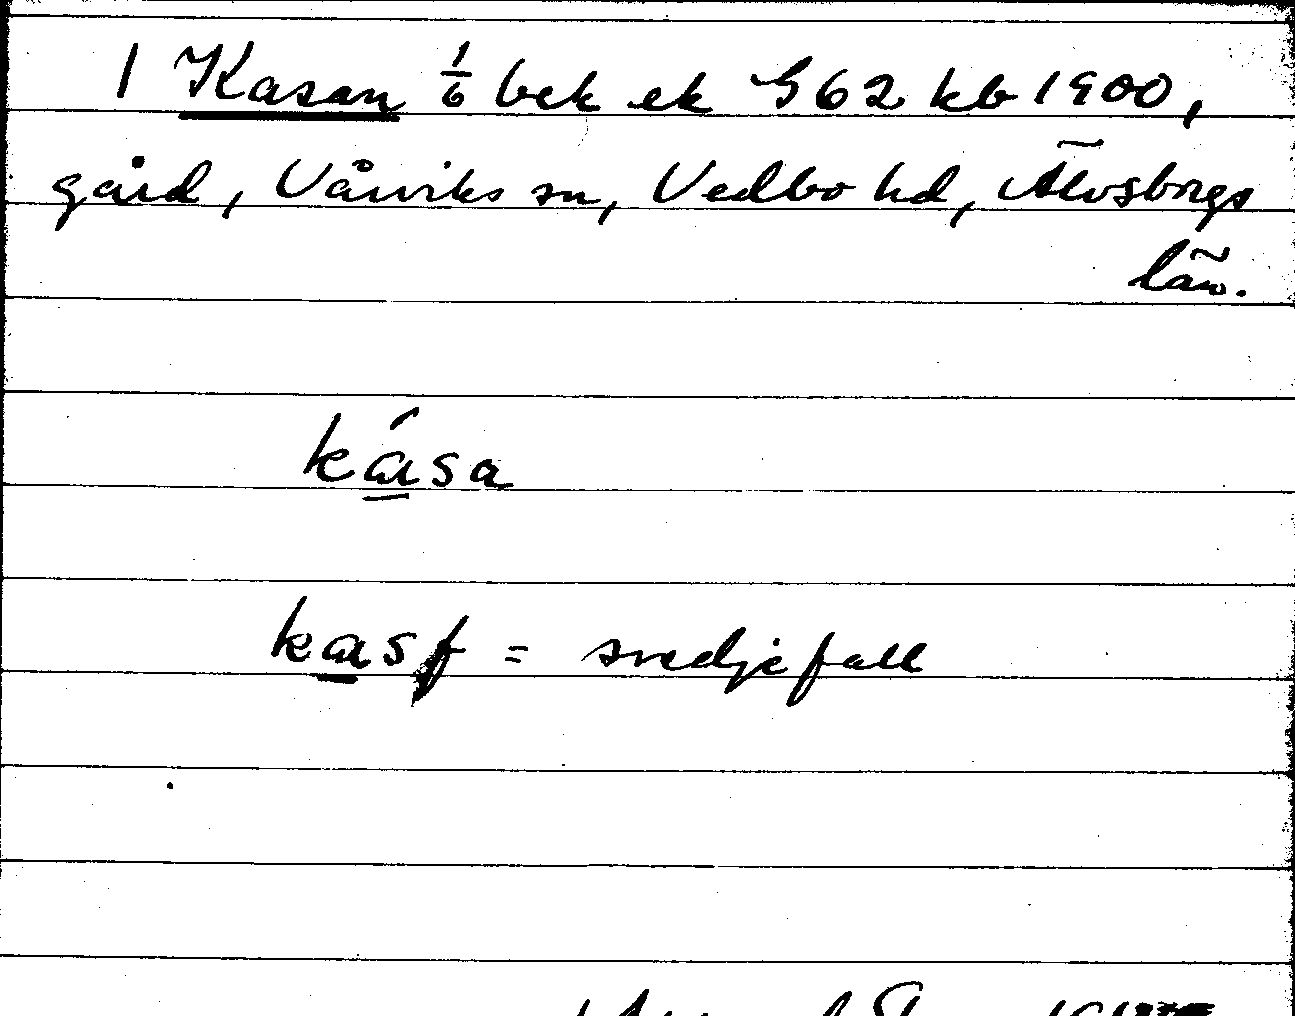 1 Kasan 1/6 bek ek G62 kb 1900,
gård, Vårviks sn, Vedbo hd, Älvsborgs
län.
kása
kas f = svedjefall